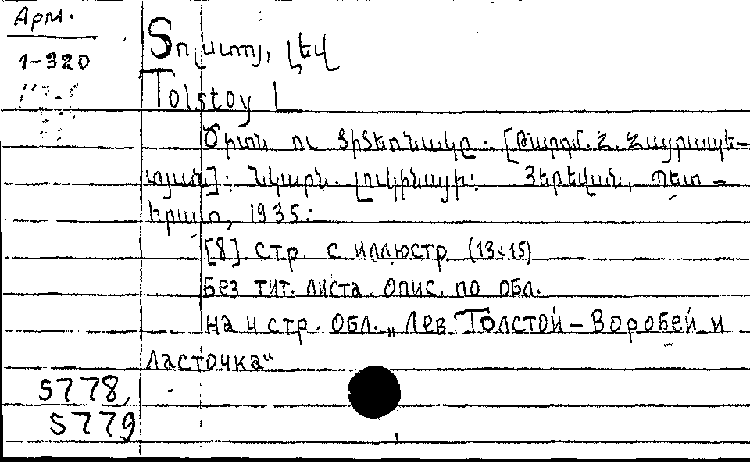 Арм.
1-320
Տոլստոյ, Լեվ
Tolstoy L
Ծիտն ու Ծիծեռնակը. [Թարգմ. Հ. Հայրապե-
տյան]: Նկարն. Լուկինայի: Յերեվան, Պետ-
հրատ, 1935:
[8] стр. с иллюстр. (13×15)
Без тит. листа. Опис. по обл.
на 4 стр. обл. „Лев Толстой – Воробей и
ласточка“
5778,
5779